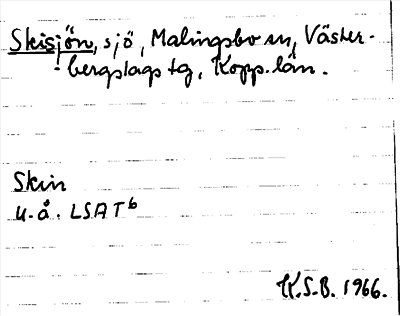 Skisjön, sjö, Malingsbo sn, Väster-
bergslags tg, Kopp. län.
Skin
u.å. LSA T⁶
K.S.B. 1966.